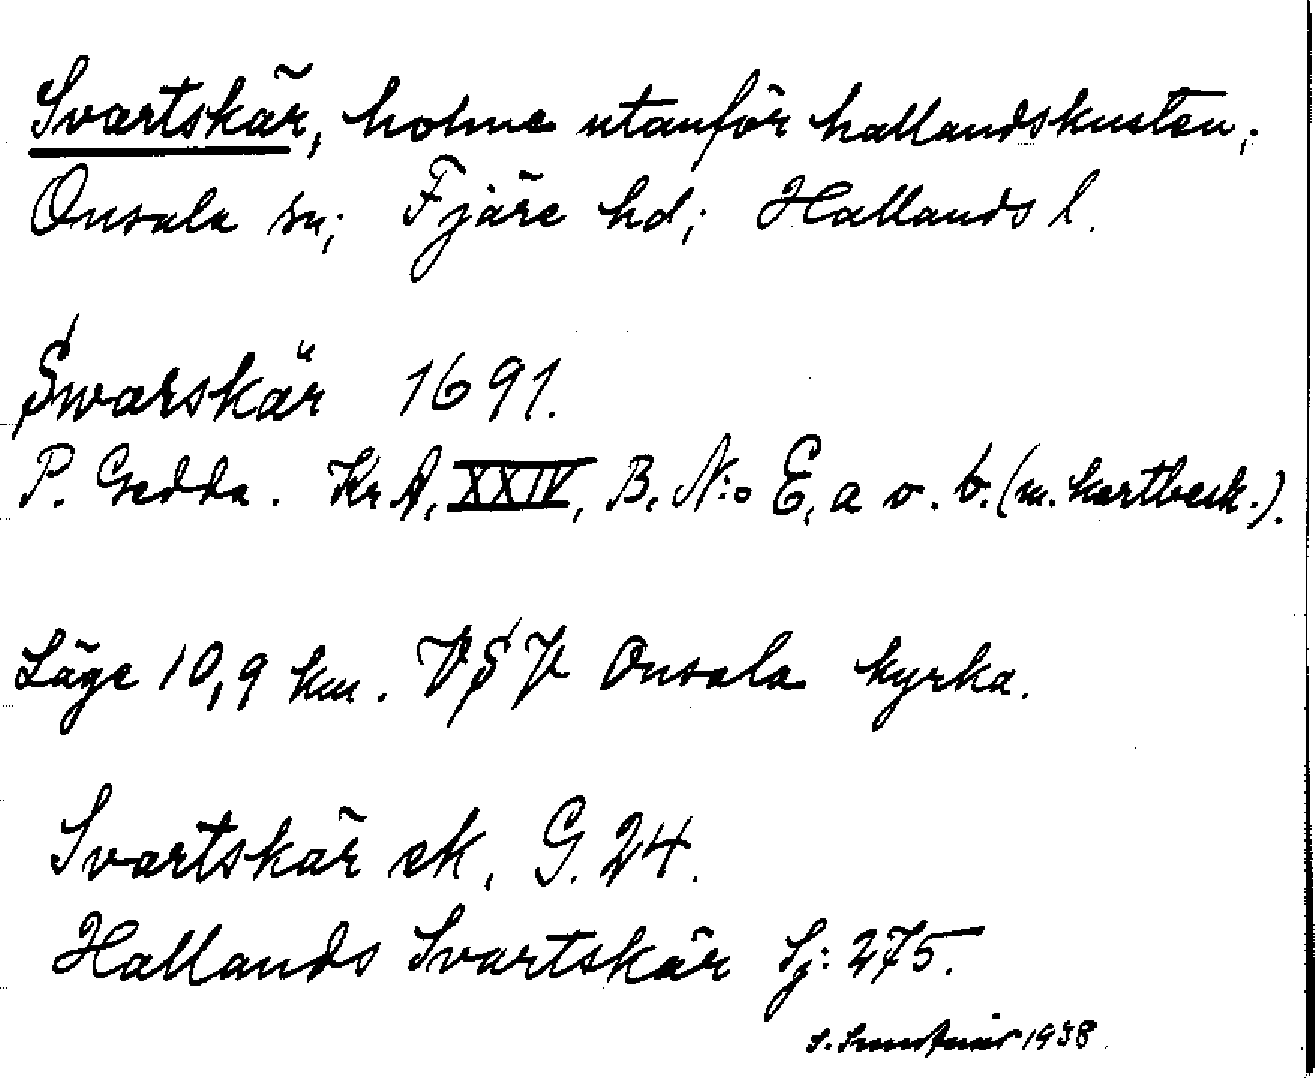 Svartskär, holme utanför hallandskusten;
Onsala sn; Fjäre hd; Hallands l.
Swarskär 1691.
P. Gedda. Kr.A. XXIV, B. N:o E, a o. b. (m. kartbesk.).
Läge 10,9 km. VSV Onsala kyrka.
Svartskär ek. G. 24.
Hallands Svartskär Sj: 275.
S. 1938